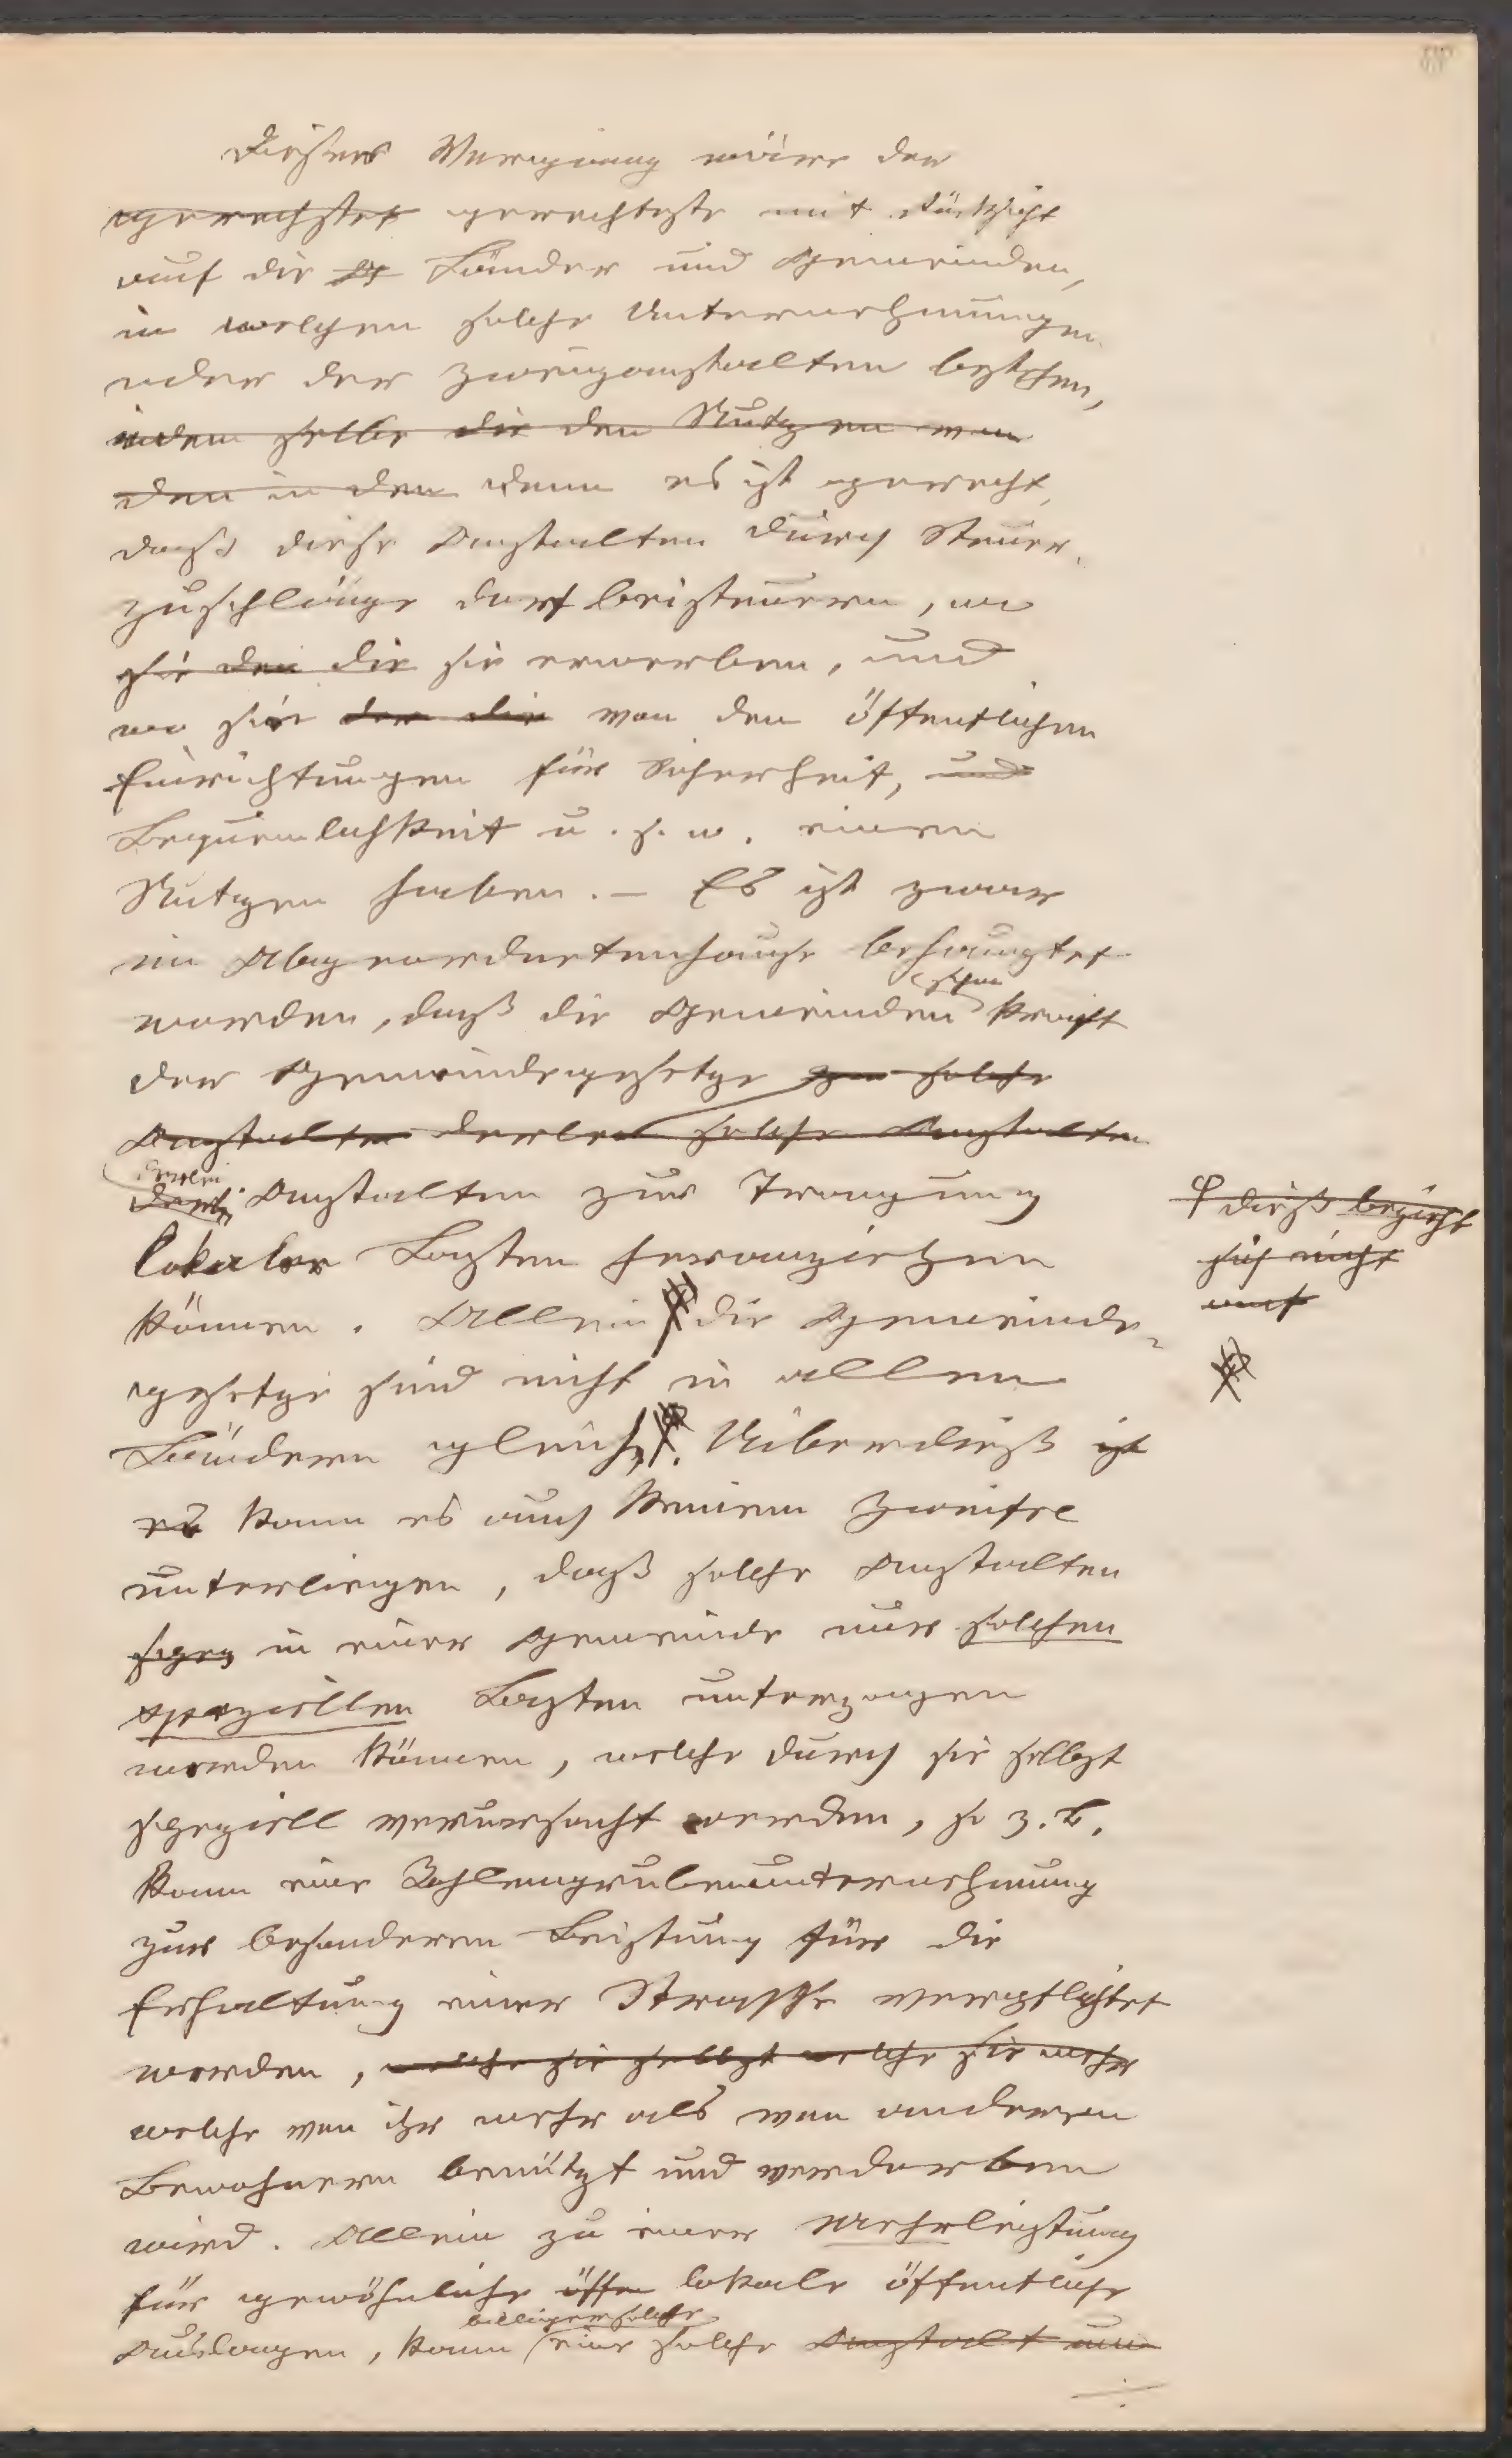 Dieser Vorgang wäre der
gerechteste gerechteste mit Rücksicht
auf die Länder und Gemeinden,
in welchen solche Unternehmungen
oder der Zweiganstalten bestehen,
indem selbe die den Nutzen von
den in den denn es ist gerecht,
dass diese Anstalten durch Steuer-
zuschläge dort beisteuern, wo
sie den die sie erwerben, und
wo sie der die von den öffentlichen
Einrichtungen für Sicherheit, und
Bequemlichkeit u. s. w. einen
Nutzen haben. – Es ist zwar
im Abgeordnetenhause behauptet
worden, daß die Gemeinden schon kraft
der Gemeindegesetze zu solche
Anstalten derlei solche Anstalten
derlei Anstalten zur Tragung
lokaler Lasten heranziehen
können. Allein die Gemeinde-
gesetze sind nicht in allen
Ländern gleich. Überdieß ist
es kann es auch keinem Zweifel
unterliegen, daß solche Anstalten
in einer Gemeinde nur solchen
speziellen Lasten unterzogen
werden können, welche durch sie selbst
speziell verursacht werden, so z. B.
kann eine Kohlengrubenunternehmung
zur besonderen Leistung für die
Erhaltung einer Strasse verpflichtet
werden, welche sie selbst welche sie mehr
welche von ihr mehr als von anderen
Bewohnern benützt und verdorben
wird. Allein zu einer Mehrleistung
für gewöhnliche öffen lokale öffentliche
Auslagen, kann eine solche Anstalt nur
dieß bezieht
sich nicht
auf